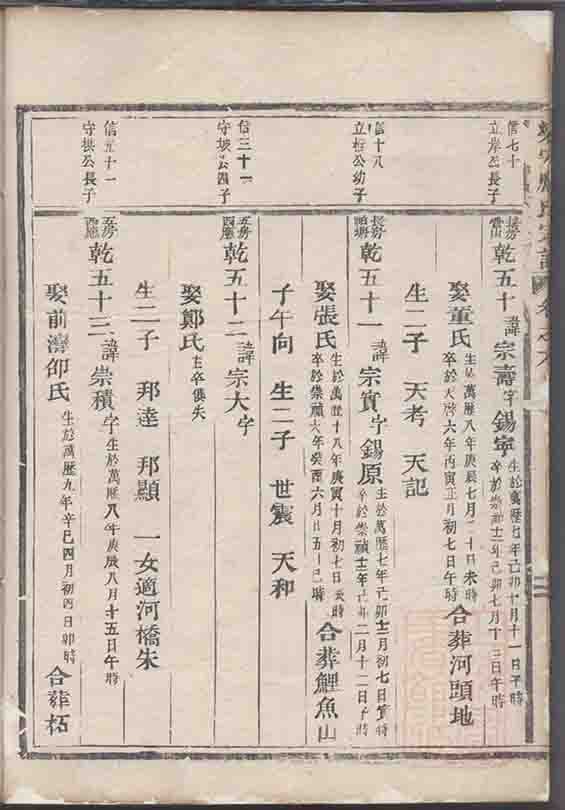 信七十
立岸公長子
長房
乾五十諱宗壽字錫寧
生於萬歷七年己卯十月十一日子時
卒於崇禎十二年己卯七月十三日午時
娶董氏
生於萬歷八年庚辰七月二十日未時
卒於天啓六年丙寅正月初七日午時
合葬河頭地
生二子 天考 天記
信十八
立恒公幼子
長房
乾五十一諱宗實字錫原
生於萬歷七年己卯十二月初七日寅時
卒於崇禎十二年己卯二月十二日子時
娶張氏
生於萬歷十八年庚寅十月初七日亥時
卒於崇禎六年癸酉六月廿五日巳時
合葬鯉魚山
子午向 生二子 世震 天和
信三十一
守坡公四子
五房
西廳
乾五十二諱宗大字
娶鄭氏
生卒俱失
信五十一
守拱公長子
五房
西廳
乾五十三諱崇積字
生於萬歷八年庚辰八月十五日午時
生二子 邦達 邦顯 一女適河橋朱
娶前濟邵氏
生於萬歷九年辛巳四月初四日卯時
合葬柘